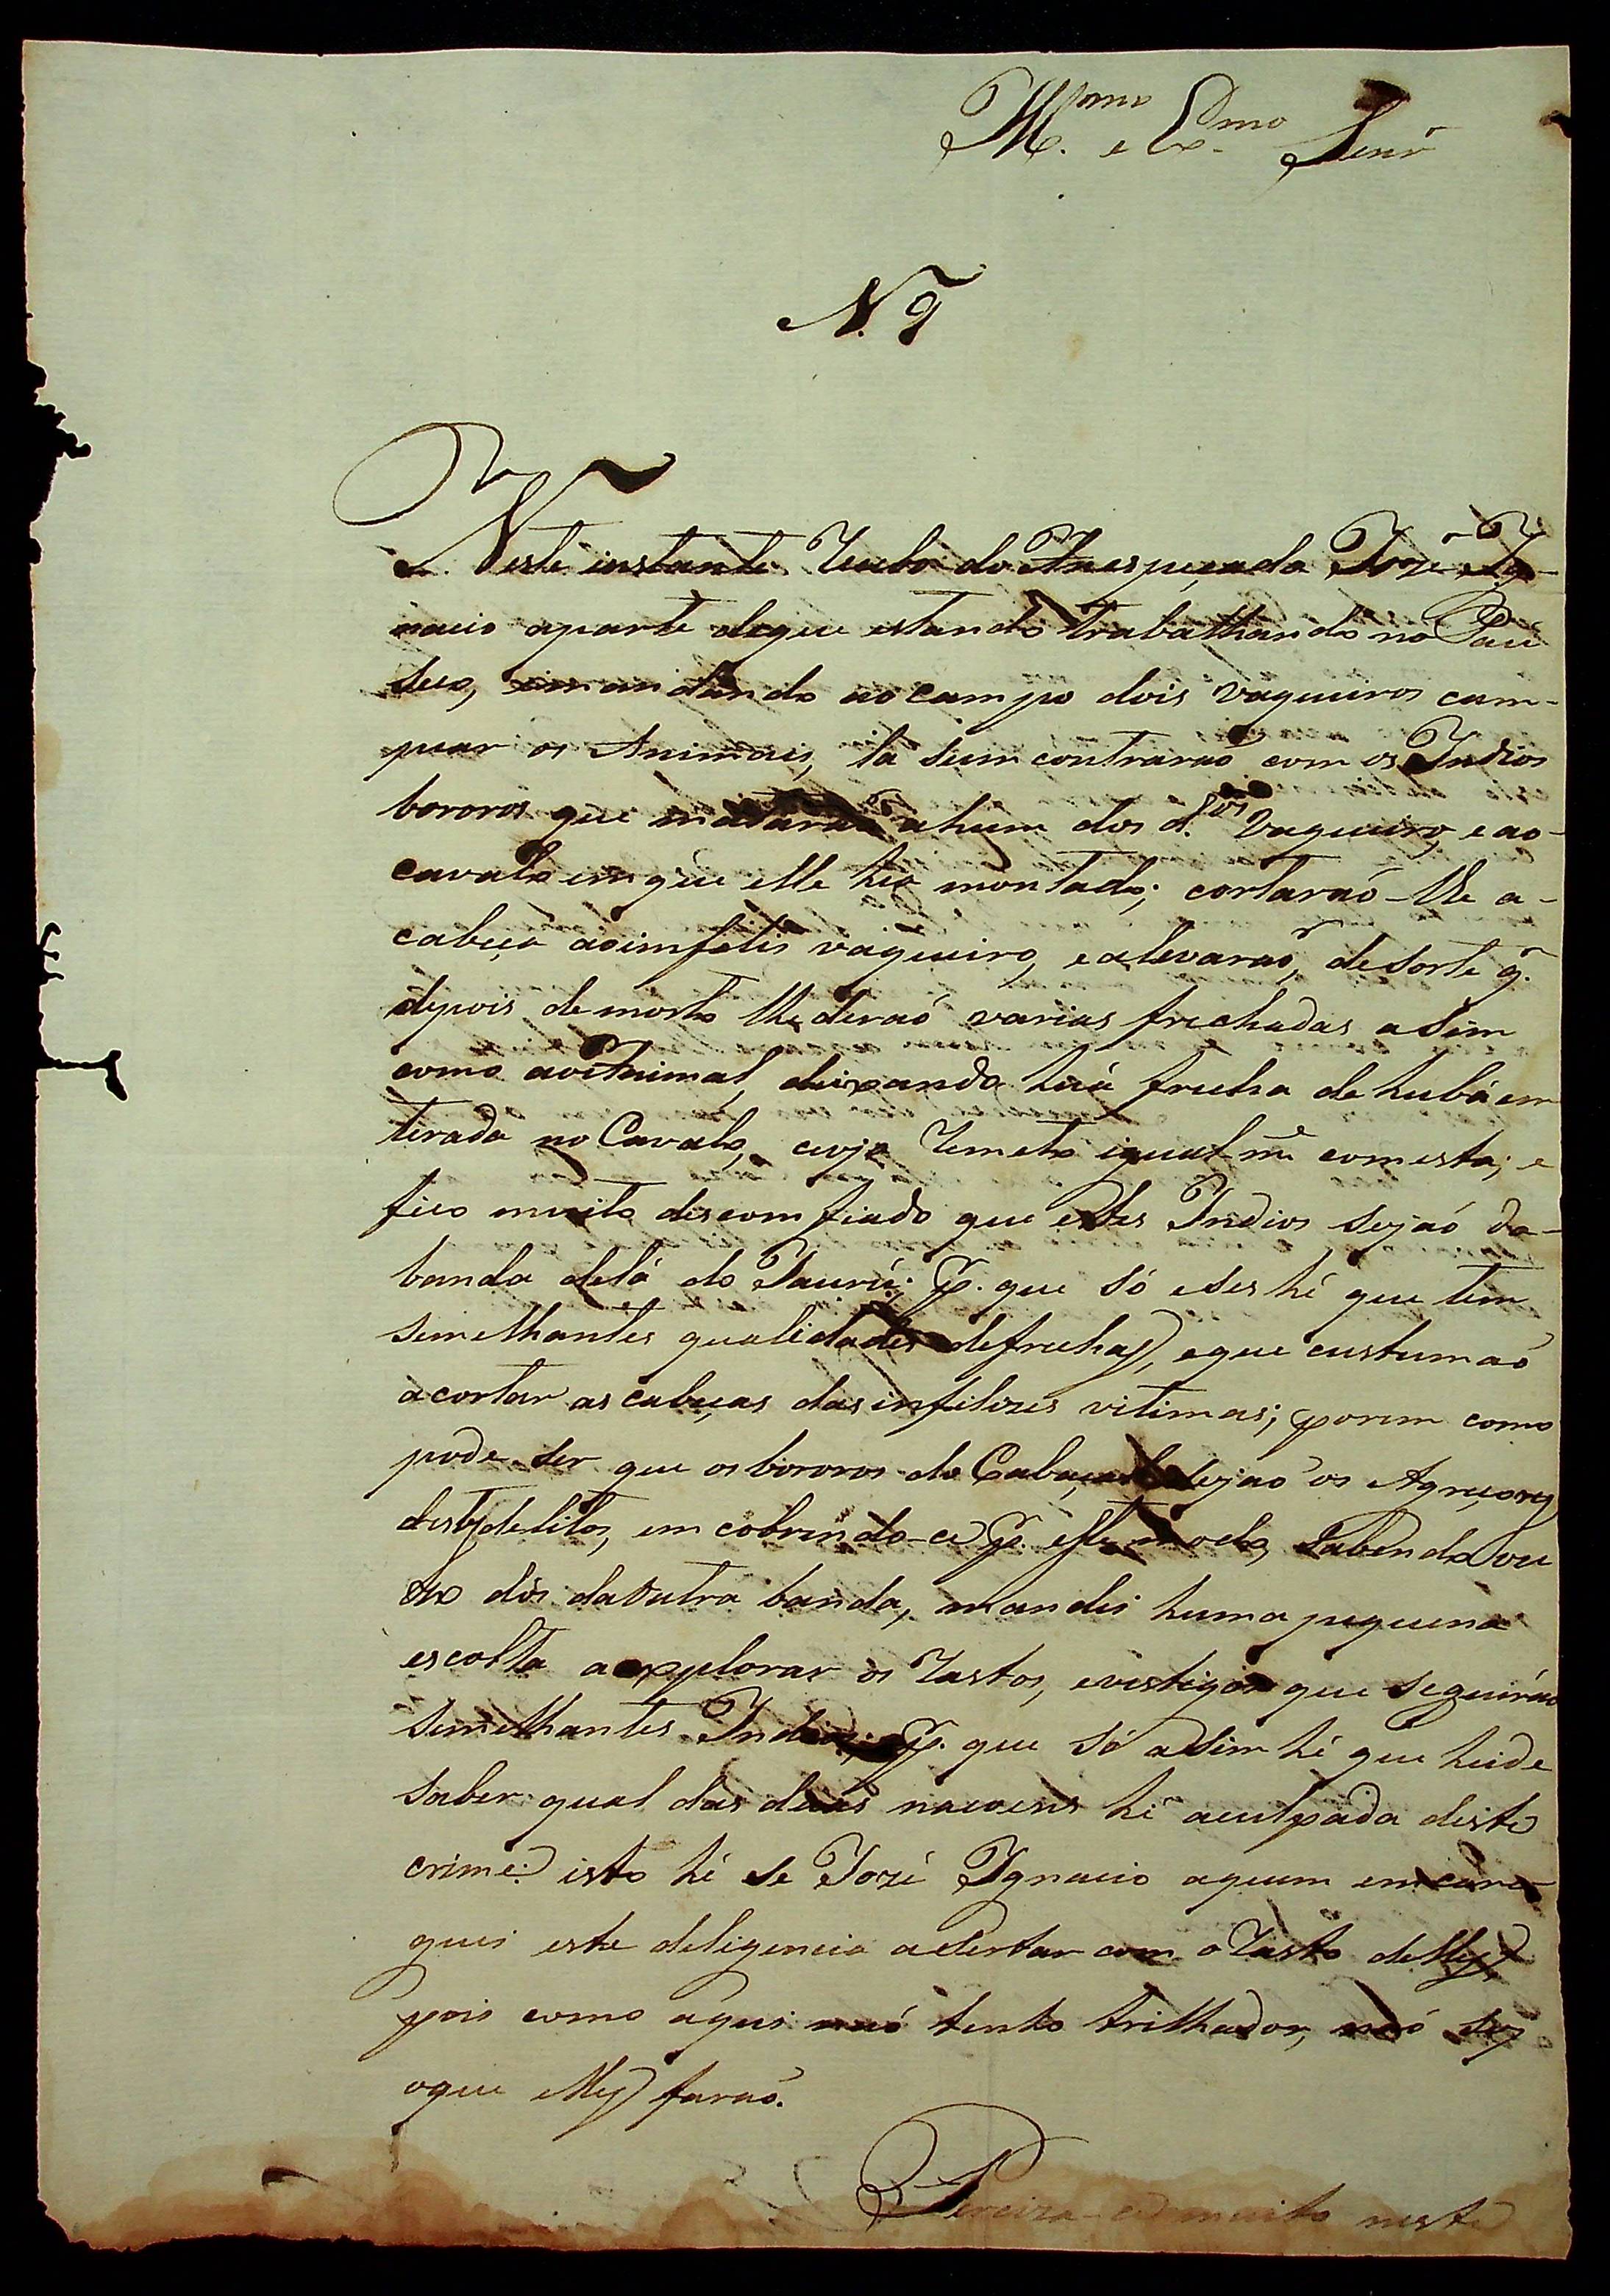 Ill.mo e Ex.mo Senr
N. 9
Neste instante recebi do Anespeçada Jozé Ig-
nacio aparte deque estando trabalhando no Páu
seco, emandando ao campo dois vaqueiros cam-
piar os Animais, la seem contraraõ com os Indios
bororos que mataraõ ahum dos d.tos vaqueiro, e ao
cavalo em que elle hia montado; cortaraõ-lhe a
cabeça aoimfelis vaqueiro, ealevaraõ, de sorte q.
depois de morto lhe deraõ varias frechadas asim
como aoAnimal, deixando huã frecha de hubá en
terada no Cavalo, cuja remeto igualm.e com esta; e
fico muito descomfiado que estes Indios sejaõ da
banda delá do Jaurú; p. que só eses hé que tem
semelhantes qualidades defrechas, eque custumaõ
acortar as cabeças das infelizes vitimas; porem como
pode ser que os bororos do Cabaçal sejaõ os Agreçores
deste delito, em cobrindo-ce p. este modo, sabendo do u
zo dos da outra banda, mandei huma pequena
escolta a explorar os rastos, evestigios que seguiraõ
semelhantes Indios; p. que só asim hé que heide
saber qual das duas nacoens hé aculpada deste
crime: isto hé se Jozé Ignacio aquem emcare-
guei esta deligencia asertar com o rasto delles,
pois como aqui naõ tenho trilhador, naõ sey
oque elles faraõ.
Perciza-ce muito neste